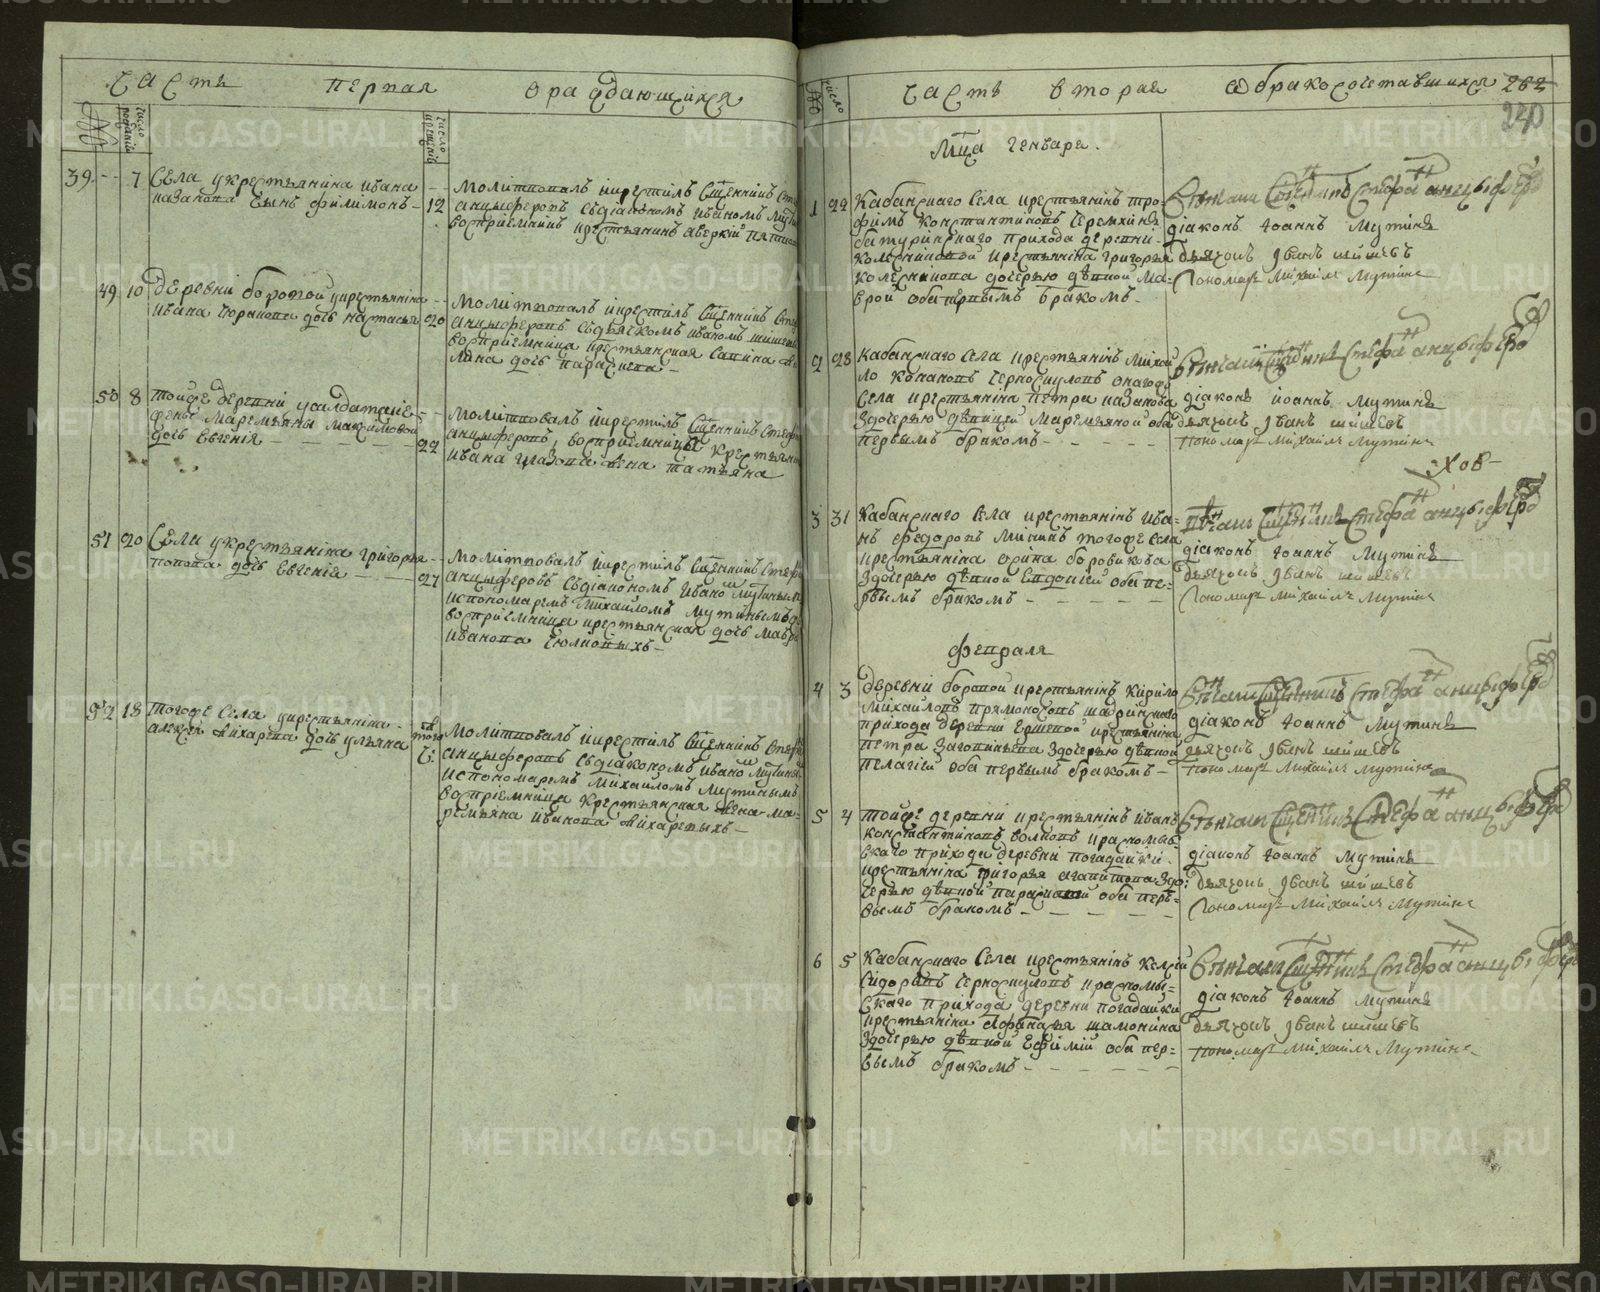 Часть первая о раждающихся
число рождения
число крещения
39 7 Села у крестьянина ивана
казакова сынъ филимонъ
12
Молитвовалъ и крестилъ Сщенникъ Сте
анцыферовъ съ діакономъ иваномъ Мути
восприемникъ крестьянинъ аверкій
49 10 деревни боровой у крестьянина
ивана дочь настасья 20
Молитвовалъ и крестилъ Сщенникъ Сте
анцыферовъ съ дьячкомъ иваномъ шишев
восприемница крестьянская
дочь параскева
50 8 тойже деревни у салдатки
Маремьяны Максимовой
дочь евгенія 22
Молитвовалъ и крестилъ Сщенникъ Стеф
анцыферовъ, восприемница крестьяни
ивана глазова жена татьяна
51 20 Села у крестьянина григорья
попова дочь Евгенія 27
Молитвовалъ и крестилъ Сщенникъ Стефа
анцыферовъ съ діакономъ ивано Мутинымъ
и спономаремъ Михайломъ Мутинымъ
восприемница крестьянская дочь Мавра
иванова
52 18 тогоже села у крестьянина
алексея жихарева дочь ульяна
того
Молитвовалъ и крестилъ Сщенникъ Стефа
анцыферовъ съ діакономъ ивано Мутины
и спономаремъ Михайломъ Мутинымъ
восприемница Крестьянская жена ма-
ремьяна иванова жихаревыхъ
часть вторая о бракосочетавшихся 262
240
число
Мца генваря.
1 22 Кабанскаго села крестьянинъ тро-
фимъ константиновъ Черемхинъ
батуринскаго прихода деревни
колесниковой крестьянина григорья
колесникова дочерью девкой ма-
врой оба первымъ бракомъ
Венчалъ Сщенникъ Стефа анцыферо
діаконъ Іоаннъ Мутинъ
дьячокъ Иванъ шишевъ
Пономарь Михайлъ Мутинъ
2 28 Кабанскаго села крестьянинъ михай
ло Черноскуловъ онагоже
села крестьянина петра казакова
здочерью девицей маремьяной оба
первымъ бракомъ
Венчалъ Сщенникъ Стефа анцыферо
діаконъ іоаннъ Мутинъ
дьячокъ Иванъ шишевъ
пономарь Михайлъ Мутинъ
3 31 Кабанскаго села крестьянинъ ива-
нъ федоровъ Мининъ тогоже села
крестьянина боровикова
здочерью девкой Евдокией оба пе-
рвымъ бракомъ
Сщенникъ Стефа анцыферо
діаконъ Іоаннъ Мутинъ
дьячокъ Иванъ шишевъ
Пономарь Михайлъ Мутинъ
февраля
4 3 деревни боровой крестьянинъ кирило
Михайловъ прямоносовъ шадринскаго
прихода деревни Ершевой крестьянина
петра здочерью девкой
пелагией оба первымъ бракомъ
Венчалъ Сщенникъ Стефа анцыферо
діаконъ Іоаннъ Мутинъ
дьячокъ Иванъ шишевъ
пономарь Михайлъ Мутинъ
5 4 тойже деревни крестьянинъ иванъ
константиновъ волковъ красномы-
скаго прихода деревни погадайки
крестьянина григорья агапитова здо-
черью девкой параскевой оба перв-
вымъ бракомъ
Венчалъ Сщенникъ Стефа анцыферо
діаконъ Іоаннъ Мутинъ
дьячокъ Иванъ шишевъ
Пономарь Михайлъ Мутинъ
6 5 Кабанскаго села крестьянинъ
Сидоровъ Черноскуловъ красномы-
скаго прихода деревни погадайки
крестьянина Афанасья шамонина
здочерью девкой Ефимией оба пер-
вымъ бракомъ
Венчалъ Сщенникъ Стефа анцыферо
діаконъ Іоаннъ Мутинъ
дьячокъ Иванъ шишевъ
пономарь Михайлъ Мутинъ
METRIKI.GASO-URAL.RU